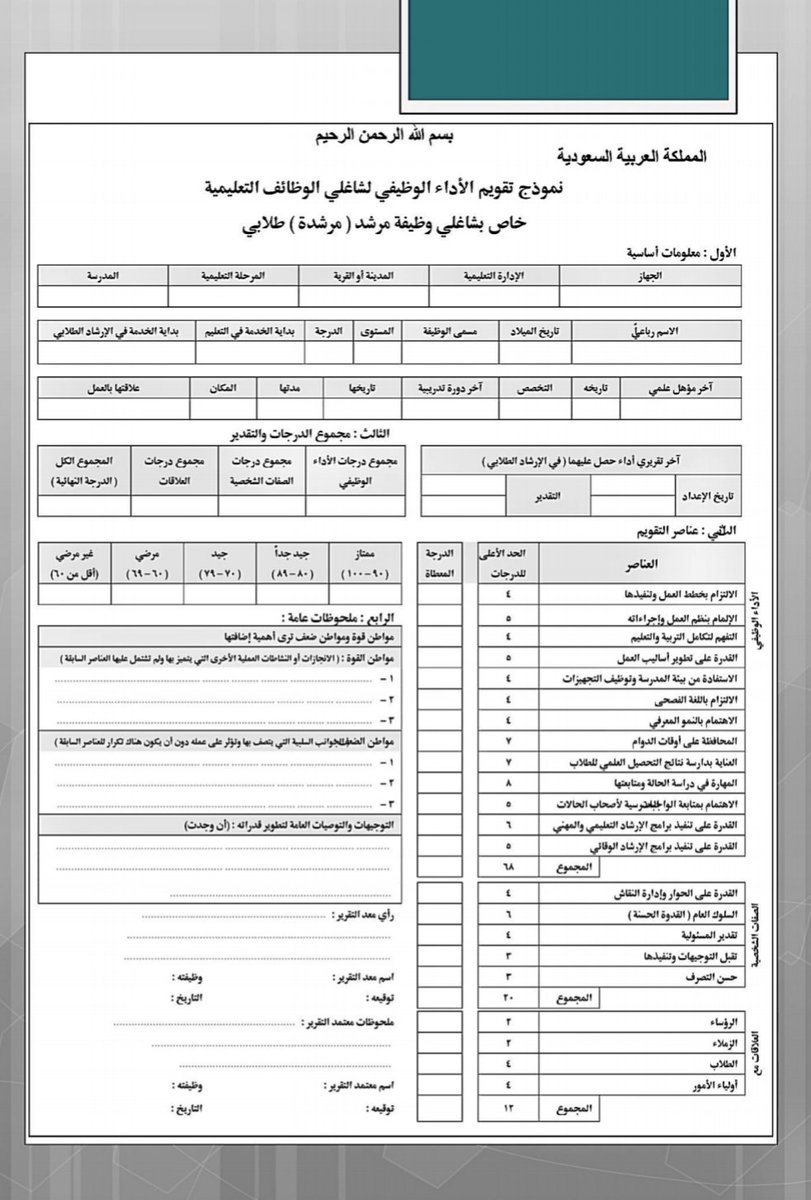 بسم الله الرحمن الرحيم
المملكة العربية السعودية
نموذج تقويم الأداء الوظيفي لشاغلي الوظائف التعليمية
خاص بشاغلي وظيفة مرشد ( مرشدة ) طلابي
الأول : معلومات أساسية
الجهاز الإدارة التعليمية المدينة أو القرية المرحلة التعليمية المدرسة
الاسم رباعيٌ تاريخ الميلاد مسمى الوظيفة المستوى الدرجة بداية الخدمة في التعليم بداية الخدمة في الإرشاد الطلابي
آخر مؤهل علمي تاريخه التخصص آخر دورة تدريبية تاريخها مدتها المكان علاقتها بالعمل
آخر تقريري أداء حصل عليهما ( في الإرشاد الطلابي )
تاريخ الإعداد التقدير
الثاني : عناصر التقويم
العناصر الحد الأعلى للدرجات الدرجة المعطاة
الأداء الوظيفي
الالتزام بخطط العمل وتنفيذها ٤
الإلمام بنظم العمل وإجراءاته ٥
التفهم لتكامل التربية والتعليم ٤
القدرة على تطوير أساليب العمل ٥
الاستفادة من بيئة المدرسة وتوظيف التجهيزات ٤
الالتزام باللغة الفصحى ٤
الاهتمام بالنمو المعرفي ٤
المحافظة على أوقات الدوام ٧
العناية بدراسة نتائج التحصيل العلمي للطلاب ٧
المهارة في دراسة الحالة ومتابعتها ٨
الاهتمام بمتابعة الواجبات المدرسية لأصحاب الحالات ٥
القدرة على تنفيذ برامج الإرشاد التعليمي والمهني ٦
القدرة على تنفيذ برامج الإرشاد الوقائي ٥
المجموع ٦٨
الصفات الشخصية
القدرة على الحوار وإدارة النقاش ٤
السلوك العام ( القدوة الحسنة ) ٦
تقدير المسئولية ٤
تقبل التوجيهات وتنفيذها ٣
حسن التصرف ٣
المجموع ٢٠
العلاقات مع
الرؤساء ٢
الزملاء ٢
الطلاب ٤
أولياء الأمور ٤
المجموع ١٢
الثالث : مجموع الدرجات والتقدير
مجموع درجات الأداء الوظيفي مجموع درجات الصفات الشخصية مجموع درجات العلاقات المجموع الكل ( الدرجة النهائية )
ممتاز جيد جداً جيد مرضي غير مرضي
(٩٠ – ١٠٠) (٨٠ – ٨٩) (٧٠ – ٧٩) (٦٠ – ٦٩) (أقل من ٦٠)
الرابع : ملحوظات عامة :
مواطن قوة ومواطن ضعف ترى أهمية إضافتها
مواطن القوة : ( الانجازات أو النشاطات العملية الأخرى التي يتميز بها ولم تشتمل عليها العناصر السابقة )
١ –
٢ –
٣ –
مواطن الضعف : ( الجوانب السلبية التي يتصف بها وتؤثر على عمله دون أن يكون هناك تكرار للعناصر السابقة )
١ –
٢ –
٣ –
التوجيهات والتوصيات العامة لتطوير قدراته : (أن وجدت)
رأي معد التقرير :
اسم معد التقرير : وظيفته :
توقيعه : التاريخ :
ملحوظات معتمد التقرير :
اسم معتمد التقرير : وظيفته :
توقيعه : التاريخ :